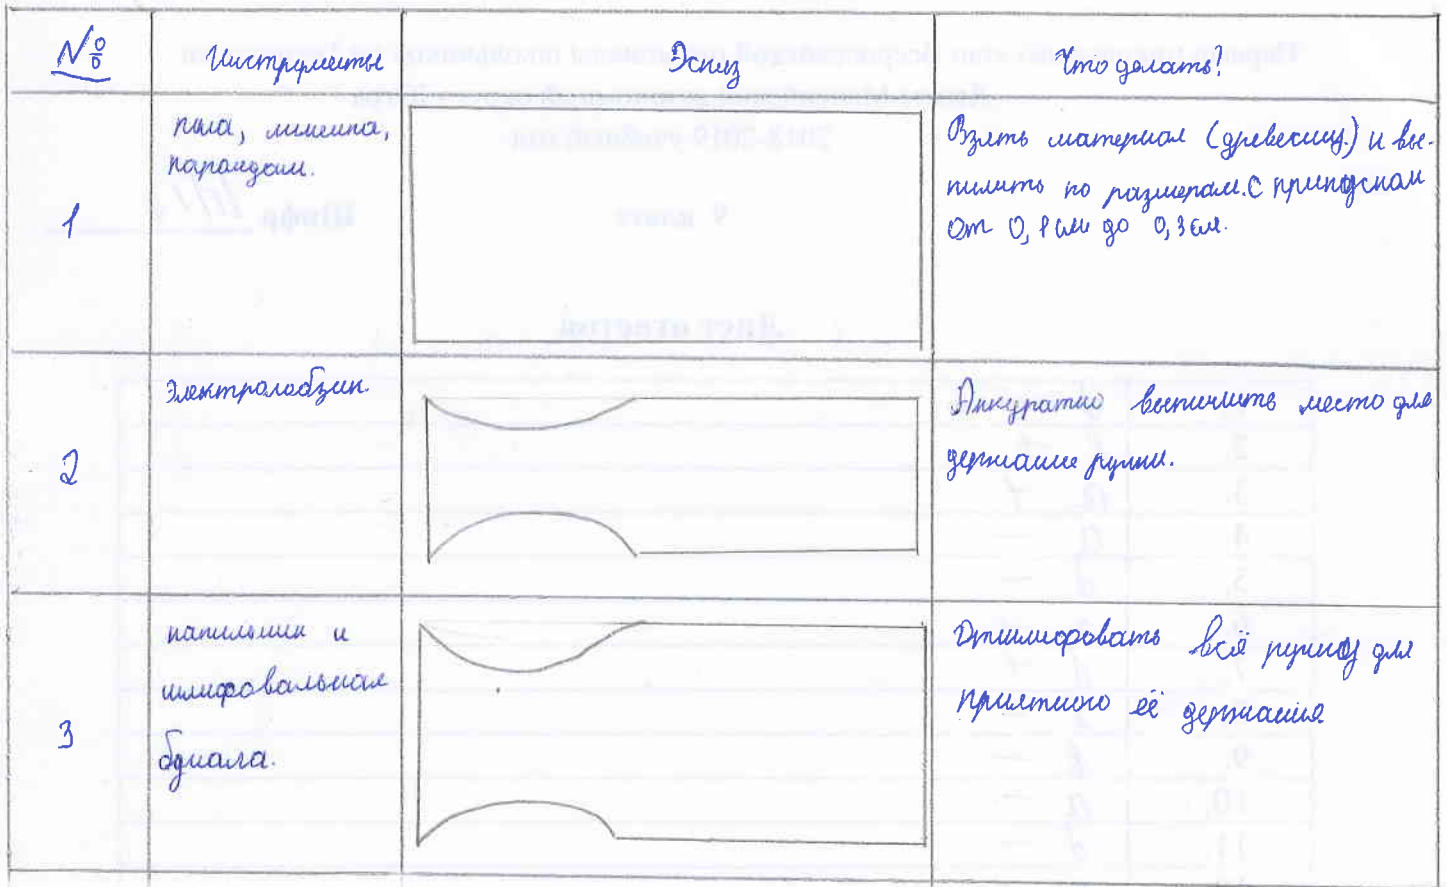 № Инструменты Эскиз Что делать?
1
пила, линейка,
карандаш.
Взять материал (древесину) и вы-
пилить по размерам. С припуском
от 0,1 см до 0,3 см.
2
Электролобзик.
Аккуратно выпилить место для
держание ручки.
3
напильник и
шлифовальная
бумага.
Отшлифовать всё ручку для
приятного её держания